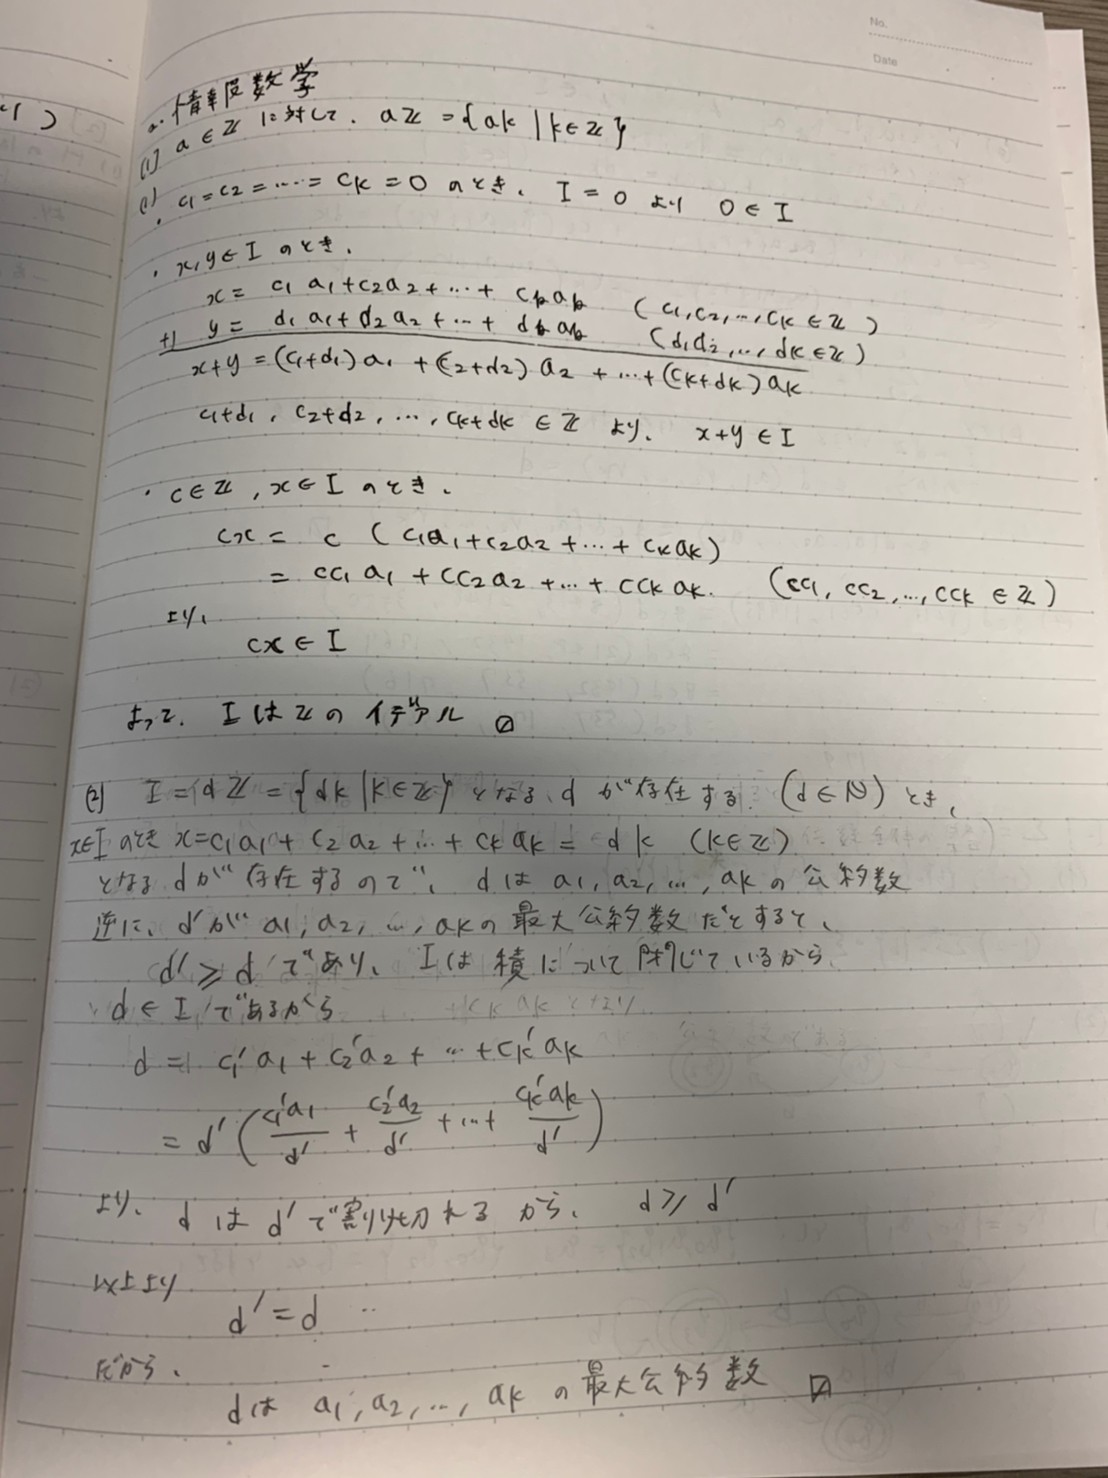 No.
Date
2. 情報数学
[1] a ∈ ℤ に対して、 aℤ = {ak | k∈ℤ}
(1) c₁=c₂=…=cₖ=0 のとき、 I=0 より 0∈I
・x,y∈I のとき、
x= c₁a₁+c₂a₂+…+cₖaₖ (c₁,c₂,…,cₖ∈ℤ)
+) y= d₁a₁+d₂a₂+…+dₖaₖ (d₁,d₂,…,dₖ∈ℤ)
x+y=(c₁+d₁)a₁+(c₂+d₂)a₂+…+(cₖ+dₖ)aₖ
c₁+d₁, c₂+d₂, …, cₖ+dₖ ∈ℤ より、 x+y∈I
・c∈ℤ, x∈I のとき、
cx = c (c₁a₁+c₂a₂+…+cₖaₖ)
= cc₁a₁+cc₂a₂+…+ccₖaₖ. (cc₁, cc₂,…,ccₖ∈ℤ)
より、
cx∈I
よって、 Iはℤのイデアル ☐
(2) I=dℤ={dk|k∈ℤ} となる d が存在する. (d∈ℕ) とき、
x∈I のとき x=c₁a₁+c₂a₂+…+cₖaₖ = dk (k∈ℤ)
となる d が存在するので、 d は a₁,a₂,…,aₖ の公約数
逆に、d′が a₁,a₂,…,aₖの最大公約数だとすると、
d′≥d であり、 Iは積について閉じているから
d∈I であるから
d = c₁′a₁+c₂′a₂+…+cₖ′aₖ
= d′(c₁′a₁/d′ + c₂′a₂/d′ +…+ cₖ′aₖ/d′)
より、 d は d′で割り切れるから、 d≥d′
以上より
d′=d
だから、
dは a₁,a₂,…,aₖ の最大公約数 ☐